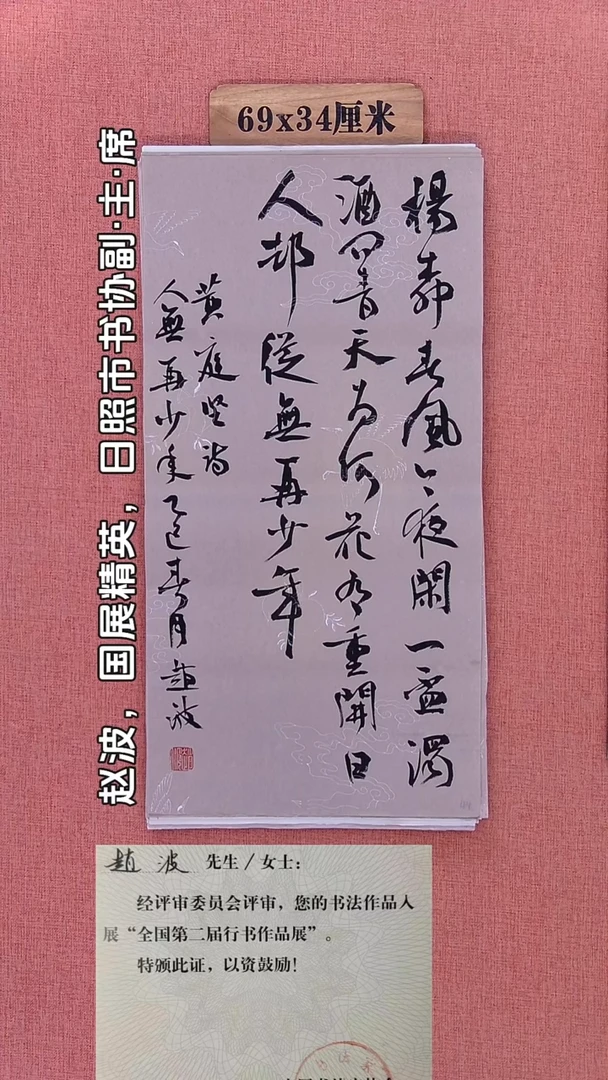 69x34厘米
赵波，国展精英，日照市书协副·主·席
楊柳春風今夜閑一盞濁
酒问青天为何花有重開日
人却從無再少年
黄庭坚詩
人無再少年乙巳春月趙波
趙波 先生／女士：
经评审委员会评审，您的书法作品入
展“全国第二届行书作品展”。
特颁此证，以资鼓励！